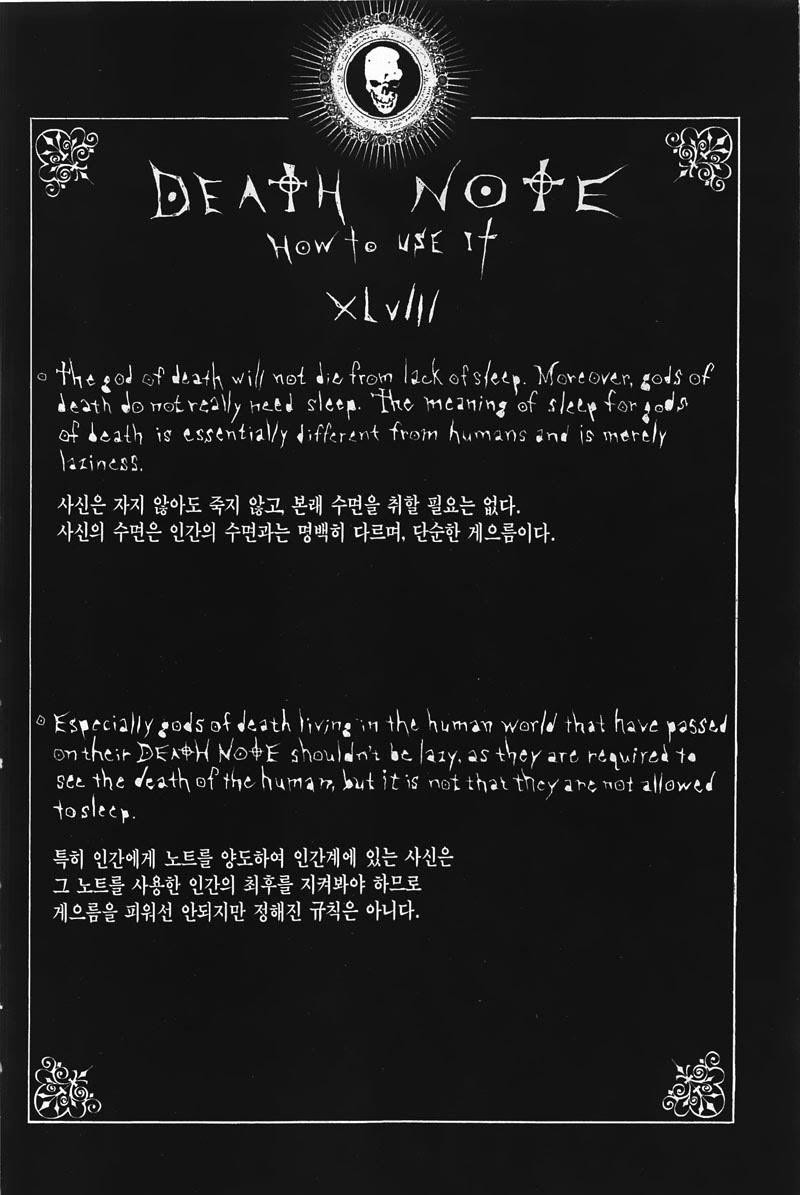 DEATH NOTE
HOW to USE It
XLVIII
The god of death will not die from lack of sleep. Moreover, gods of
death do not really need sleep. The meaning of sleep for gods
of death is essentially different from humans and is merely
laziness.
사신은 자지 않아도 죽지 않고, 본래 수면을 취할 필요는 없다.
사신의 수면은 인간의 수면과는 명백히 다르며, 단순한 게으름이다.
Especially gods of death living in the human world that have passed
on their DEATH NOTE shouldn't be lazy, as they are required to
see the death of the human, but it is not that they are not allowed
to sleep.
특히 인간에게 노트를 양도하여 인간계에 있는 사신은
그 노트를 사용한 인간의 최후를 지켜봐야 하므로
게으름을 피워선 안되지만 정해진 규칙은 아니다.